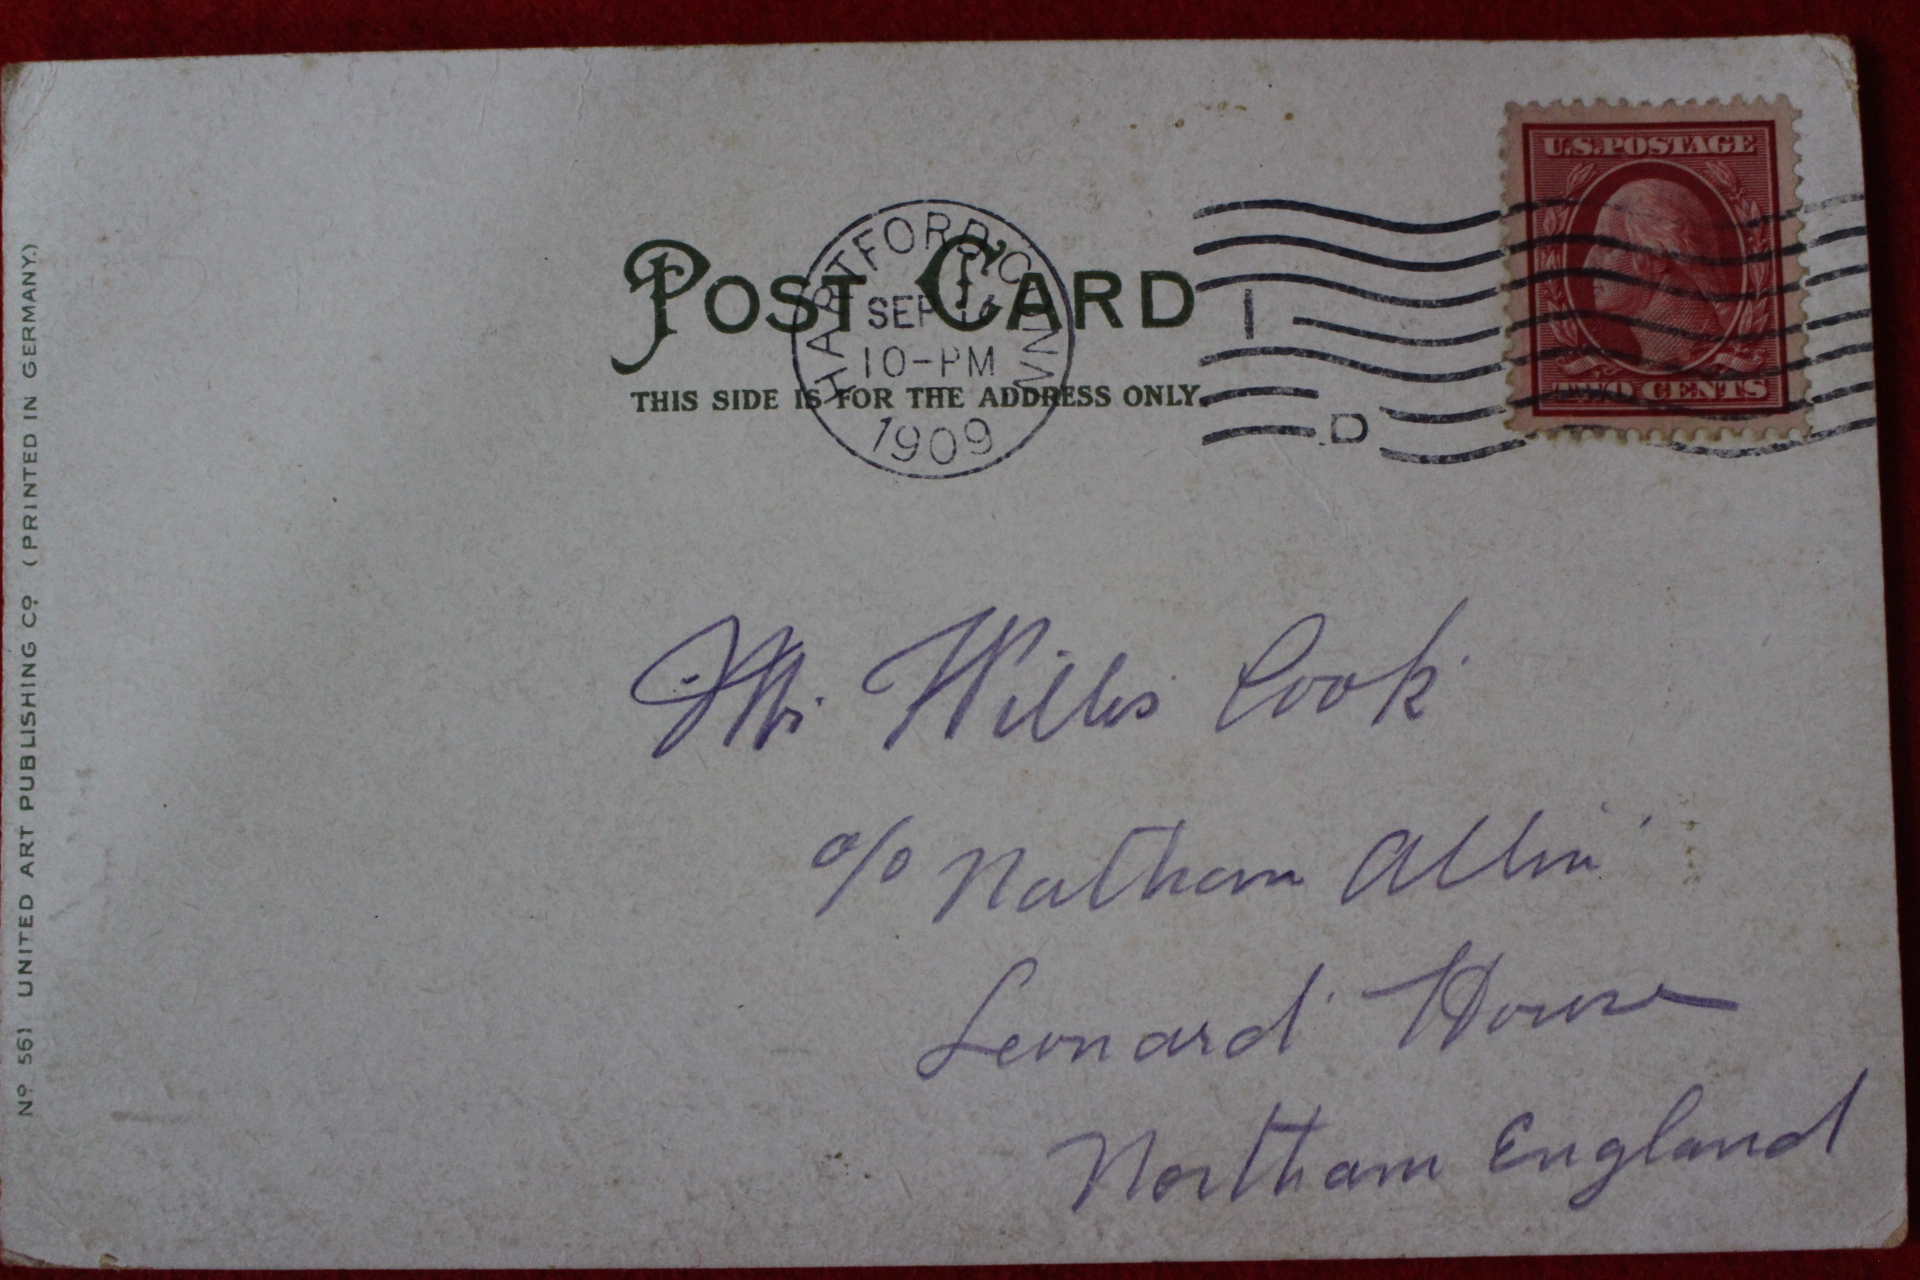 U.S. POSTAGE
TWO CENTS
HARTFORD CONN
SEP
10-PM
1909
1
D
POST CARD
THIS SIDE IS FOR THE ADDRESS ONLY.
Mr. Willis Cook
c/o Nathan Allin
Leonard House
Northam England
Nº 561 UNITED ART PUBLISHING Cº (PRINTED IN GERMANY.)